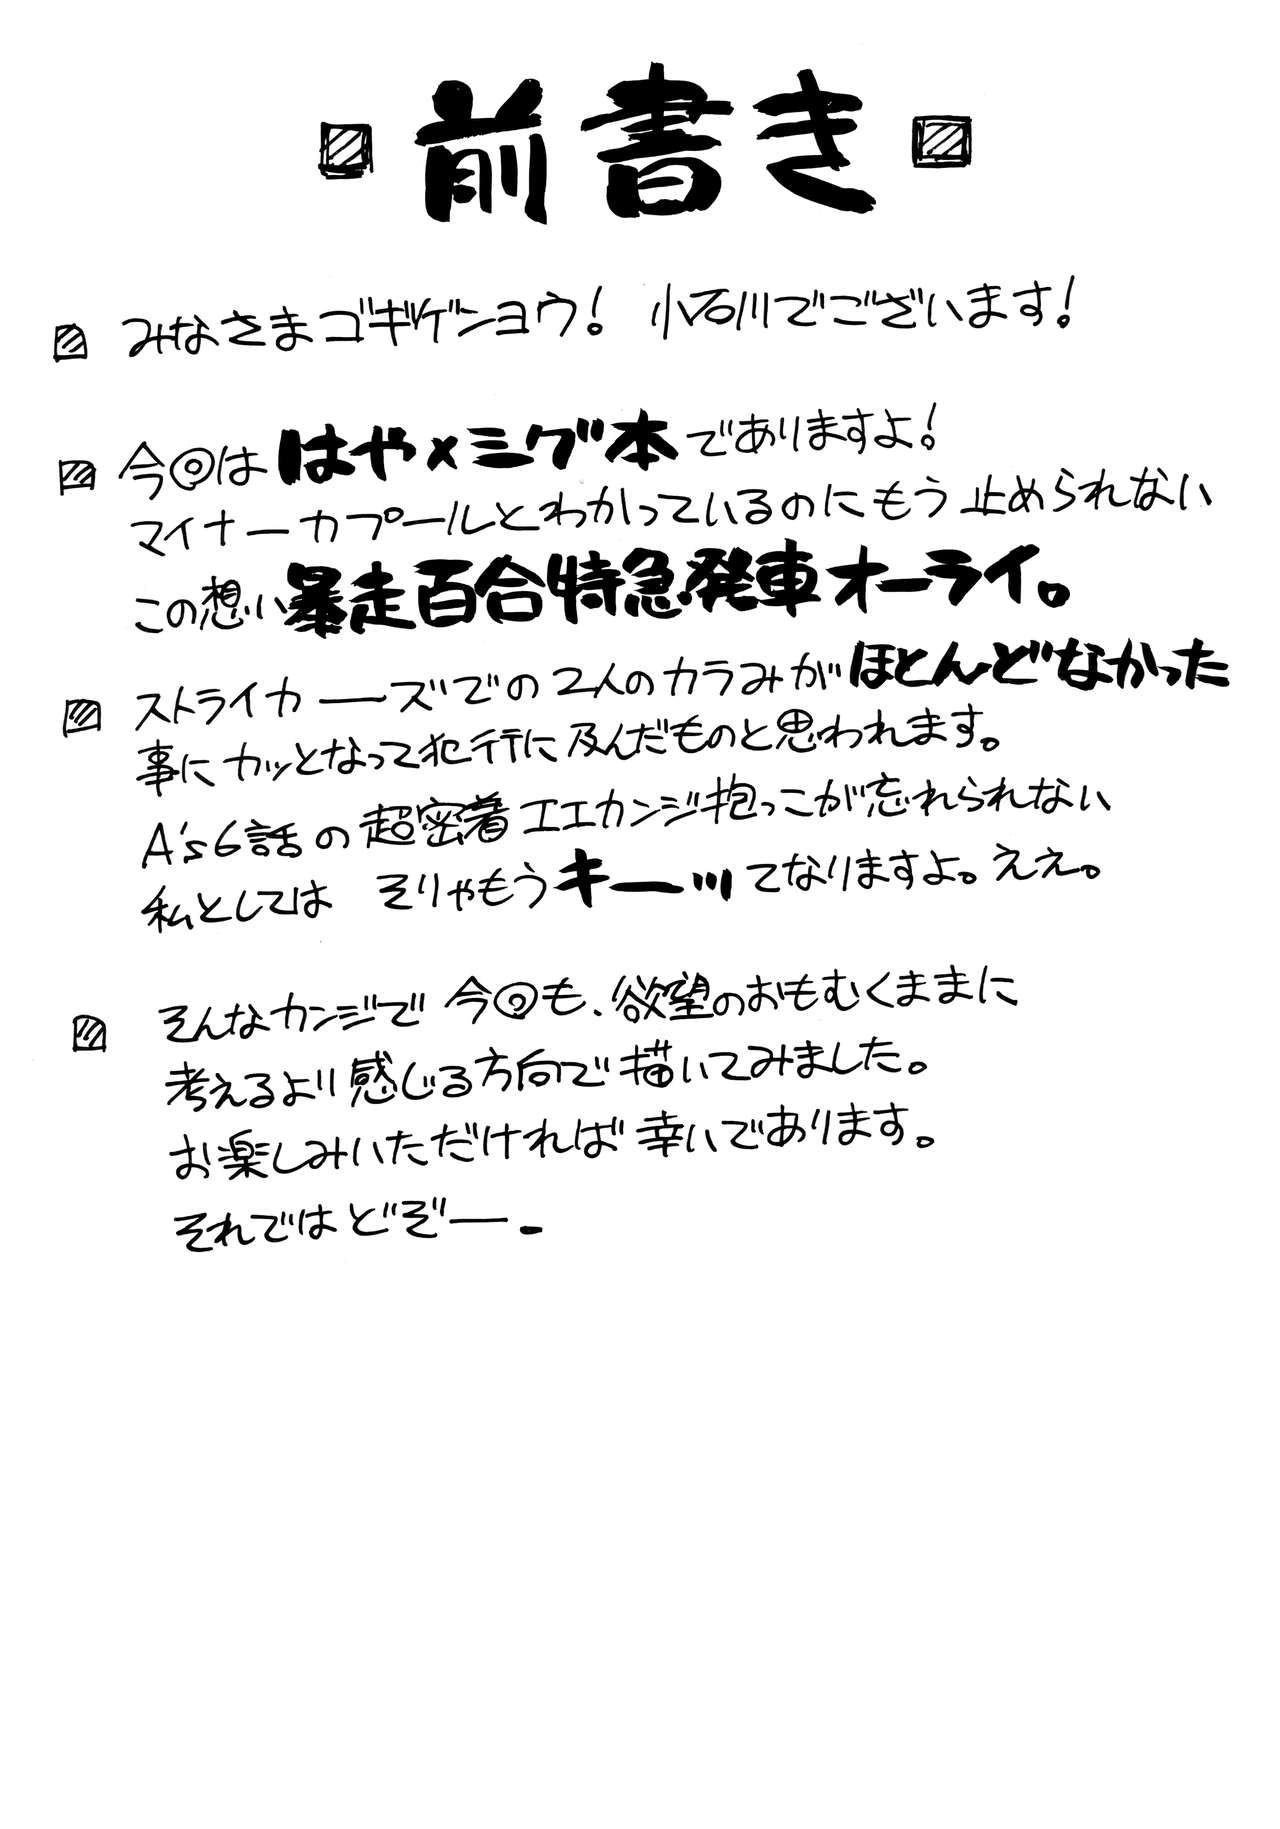 前書き
みなさまゴギゲンヨウ! 小石川でございます!
今回は はや×シグ本 でありますよ!
マイナーカプールとわかっているのにもう止められない
この想い暴走百合特急発車オーライ。
ストライカーーズでの2人のカラみがほとんどなかった
事にカッとなって犯行に及んだものと思われます。
A's6話の超密着エエカンジ抱っこが忘れられない
私としては そりゃもうキーッてなりますよ。ええ。
そんなカンジで 今回も、欲望のおもむくままに
考えるより感じる方向で描いてみました。
お楽しみいただければ幸いであります。
それではどぞー.